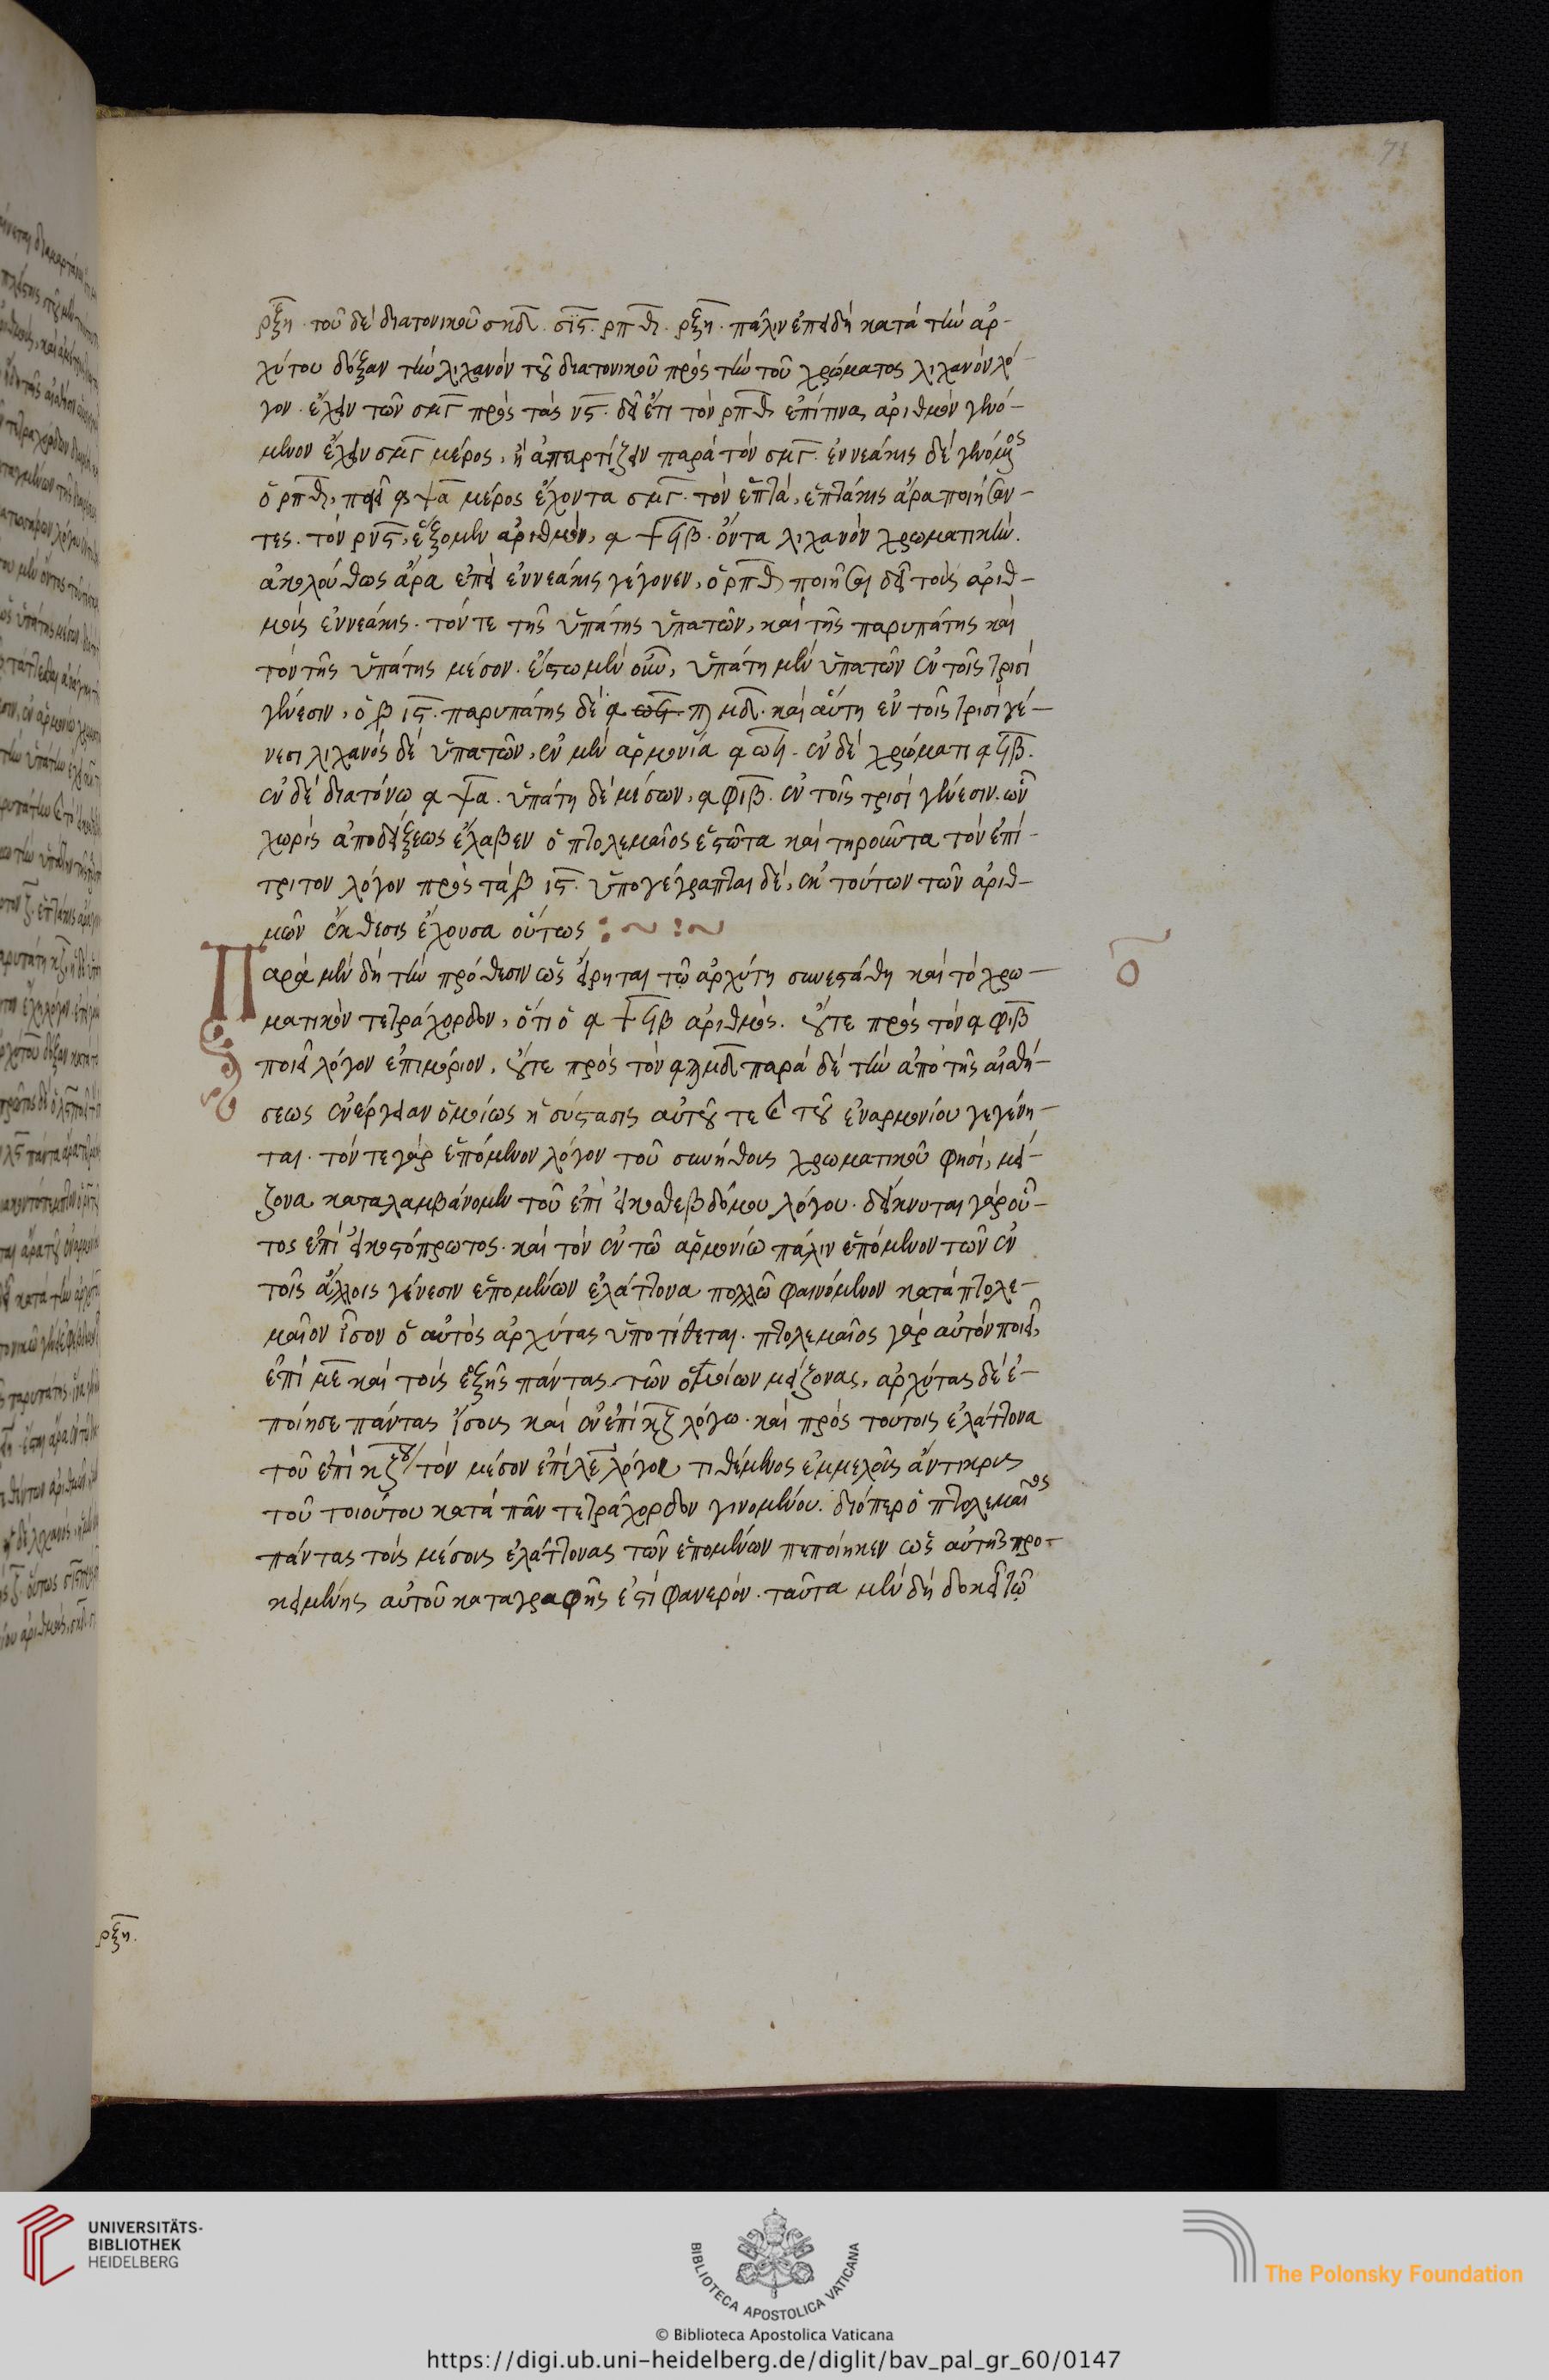 71
ρξη · τοῦ δὲ διατονικοῦ σκδ. σις. ρπθ. ρξη · πάλιν ἐπειδὴ κατὰ τὴν ἀρ-
χύτου δόξαν τὴν λιχανὸν τοῦ διατονικοῦ πρὸς τὴν τοῦ χρώματος λιχανὸν λό-
γον · ἔχειν τῶν σμγ πρὸς τὰς νς · δεῖ ἔτι τὸν ρπθ ἐπί τινας ἀριθμὸν γενό-
μενον ἔχειν σμγ μέρος, ἢ ἀπαρτίζειν παρὰ τὸν σμγ. ἐννεάκις δὲ γενόμενος
ὁ ρπθ, ποιεῖ ͵αψα μέρος ἔχοντα σμγ · τὸν ἑπτά, ἑπτάκις ἄρα ποιήσαν-
τες · τὸν ρνς, ἕξομεν ἀριθμὸν, ͵α ϡβ · ὄντα λιχανὸν χρωματικήν.
ἀκολούθως ἄρα ἐπεὶ ἐννεάκις γέγονεν, ὁ ρπθ ποιῆσαι δεῖ τοὺς ἀριθ-
μοὺς ἐννεάκις · τόν τε τῆς ὑπάτης ὑπατῶν, καὶ τῆς παρυπάτης καὶ
τὸν τῆς ὑπάτης μέσον · ἔστω μὲν οὖν, ὑπάτη μὲν ὑπατῶν ἐν τοῖς τρισὶ
γένεσιν, ὁ β ις · παρυπάτης δὲ ͵α μδ · καὶ αὕτη ἐν τοῖς τρισὶ γέ-
νεσι λιχανὸς δὲ ὑπατῶν, ἐν μὲν ἁρμονία ͵α ω · ἐν δὲ χρώματι ͵α β.
ἐν δὲ διατόνω ͵α ψα · ὑπάτη δὲ μέσων, ͵α φιβ · ἐν τοῖς τρισὶ γένεσιν · ὧν
χωρὶς ἀποδείξεως ἔλαβεν ὁ πτολεμαῖος ἑστῶτα καὶ τηροῦντα τὸν ἐπί-
τριτον λόγον πρὸς τὰ β ις · ὑπογέγραπται δὲ, ἐκ τούτων τῶν ἀριθ-
μῶν ἔκθεσις ἔχουσα οὕτως :~ :~
Παρὰ μὲν δὴ τὴν πρόθεσιν ὡς εἴρηται τῷ ἀρχύτη συνεστάθη καὶ τὸ χρω-
ματικὸν τετράχορδον, ὅτι ὁ ͵α ϡβ ἀριθμὸς · οὔτε πρὸς τὸν ͵α φιβ
ποιεῖ λόγον ἐπιμόριον, οὔτε πρὸς τὸν ͵α μδ παρὰ δὲ τὴν ἀπὸ τῆς αἰσθή-
σεως ἐνέργειαν ὁμοίως ἡ σύστασις αὐτοῦ τε καὶ τοῦ ἐναρμονίου γεγένη-
ται · τόν τε γὰρ ἑπόμενον λόγον τοῦ συνήθους χρωματικοῦ φησὶ, μεί-
ζονα καταλαμβάνομεν τοῦ ἐπὶ εἰκοσθεβδόμου λόγου · δείκνυται γὰρ οὗ-
τος ἐπὶ εἰκοστόπρωτος · καὶ τὸν ἐν τῶ ἁρμονίω πάλιν ἑπόμενον τῶν ἐν
τοῖς ἄλλοις γένεσιν ἑπομένων ἐλάττονα πολλῶ φαινόμενον κατὰ πτολε-
μαῖον ἴσον ὁ αὐτὸς ἀρχύτας ὑποτίθεται · πτολεμαῖος γὰρ αὐτὸν ποιεῖ,
ἐπὶ με καὶ τοὺς ἑξῆς πάντας τῶν ὁμοίων μείζονας, ἀρχύτας δὲ ἐ-
ποίησε πάντας ἴσους καὶ ἐν ἐπὶ κζ λόγω · καὶ πρὸς τούτοις ἐλάττονα
τοῦ ἐπὶ κζου τὸν μέσον ἐπὶ λε λόγον τιθέμενος ἐμμελοῦς ἄντικρυς
τοῦ τοιούτου κατὰ πᾶν τετράχορδον γινομένου · διόπερ ὁ πτολεμαῖος
πάντας τοὺς μέσους ἐλάττονας τῶν ἑπομένων πεποίηκεν ὡς αὐτῆς προ-
κειμένης αὐτοῦ καταγραφῆς ἐστὶ φανερόν · ταῦτα μὲν δὴ δοκεῖ τῷ
ο
ρξη.
UNIVERSITÄTS-
BIBLIOTHEK
HEIDELBERG
BIBLIOTECA APOSTOLICA VATICANA
© Biblioteca Apostolica Vaticana
The Polonsky Foundation
https://digi.ub.uni-heidelberg.de/diglit/bav_pal_gr_60/0147